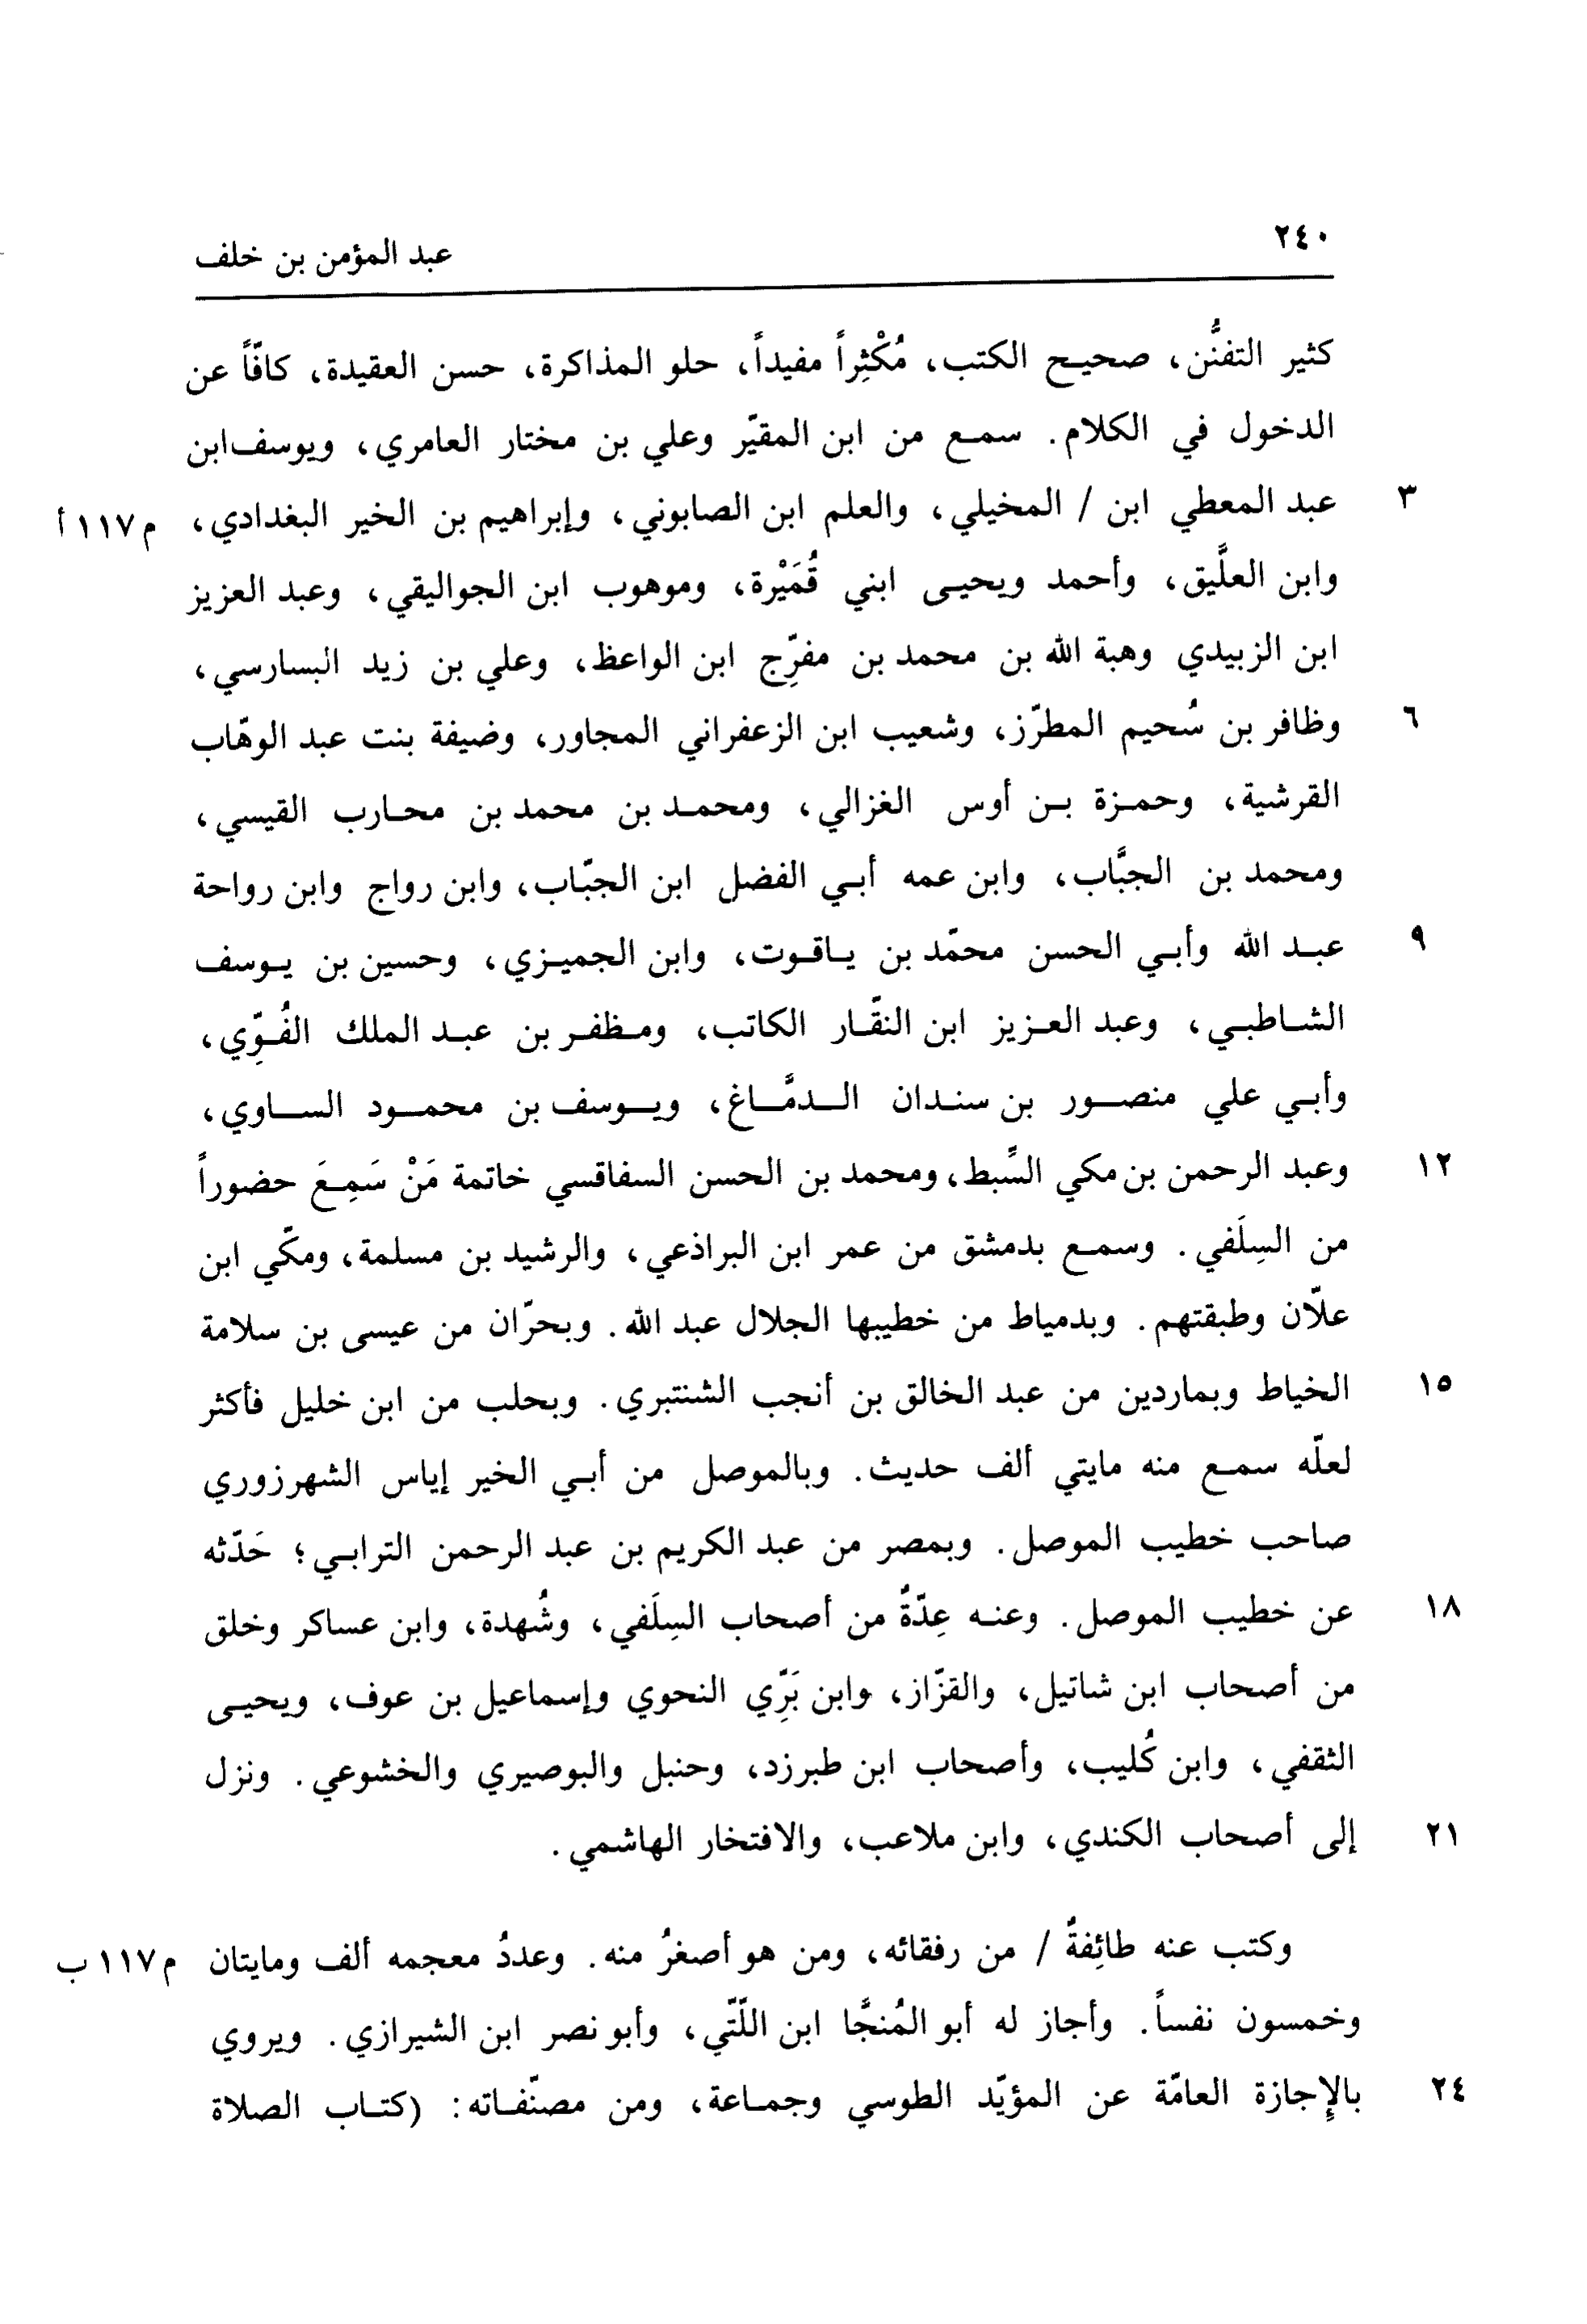 ٢٤٠
عبد المؤمن بن خلف
كثير التفنُّن، صحيح الكتب، مُكْثِراً مفيداً، حلو المذاكرة، حسن العقيدة، كافّاً عن
الدخول في الكلام. سمع من ابن المقيّر وعلي بن مختار العامري، ويوسف ابن
٣ عبد المعطي ابن / المخيلي، والعلم ابن الصابوني، وإبراهيم بن الخير البغدادي، م١١٧ أ
وابن العلَّيق، وأحمد ويحيى ابني قُمَيْرة، وموهوب ابن الجواليقي، وعبد العزيز
ابن الزبيدي وهبة الله بن محمد بن مفرِّج ابن الواعظ، وعلي بن زيد البسارسي،
٦ وظافر بن سُحيم المطرّز، وشعيب ابن الزعفراني المجاور، وضيفة بنت عبد الوهّاب
القرشية، وحمزة بن أوس الغزالي، ومحمد بن محمد بن محارب القيسي،
ومحمد بن الجبَّاب، وابن عمه أبي الفضل ابن الجبّاب، وابن رواج وابن رواحة
٩ عبد الله وأبي الحسن محمّد بن ياقوت، وابن الجميزي، وحسين بن يوسف
الشاطبي، وعبد العزيز ابن النقّار الكاتب، ومظفر بن عبد الملك الفُوِّي،
وأبي علي منصور بن سندان الدمَّاغ، ويوسف بن محمود الساوي،
١٢ وعبد الرحمن بن مكي السِّبط، ومحمد بن الحسن السفاقسي خاتمة مَنْ سَمِعَ حضوراً
من السِلَفي. وسمع بدمشق من عمر ابن البراذعي، والرشيد بن مسلمة، ومكّي ابن
علّان وطبقتهم. وبدمياط من خطيبها الجلال عبد الله. وبحرّان من عيسى بن سلامة
١٥ الخياط وبماردين من عبد الخالق بن أنجب الشنتبري. وبحلب من ابن خليل فأكثر
لعلّه سمع منه مايتي ألف حديث. وبالموصل من أبي الخير إياس الشهرزوري
صاحب خطيب الموصل. وبمصر من عبد الكريم بن عبد الرحمن الترابي؛ حَدّثه
١٨ عن خطيب الموصل. وعنه عِدّةٌ من أصحاب السِلَفي، وشُهدة، وابن عساكر وخلق
من أصحاب ابن شاتيل، والقزّاز، وابن بَرِّي النحوي وإسماعيل بن عوف، ويحيى
الثقفي، وابن كُليب، وأصحاب ابن طبرزد، وحنبل والبوصيري والخشوعي. ونزل
٢١ إلى أصحاب الكندي، وابن ملاعب، والافتخار الهاشمي.
وكتب عنه طائِفةٌ / من رفقائه، ومن هو أصغرُ منه. وعددُ معجمه ألف ومايتان م١١٧ ب
وخمسون نفساً. وأجاز له أبو المُنجَّا ابن اللّتّي، وأبو نصر ابن الشيرازي. ويروي
٢٤ بالإِجازة العامّة عن المؤيّد الطوسي وجماعة، ومن مصنّفاته: (كتاب الصلاة